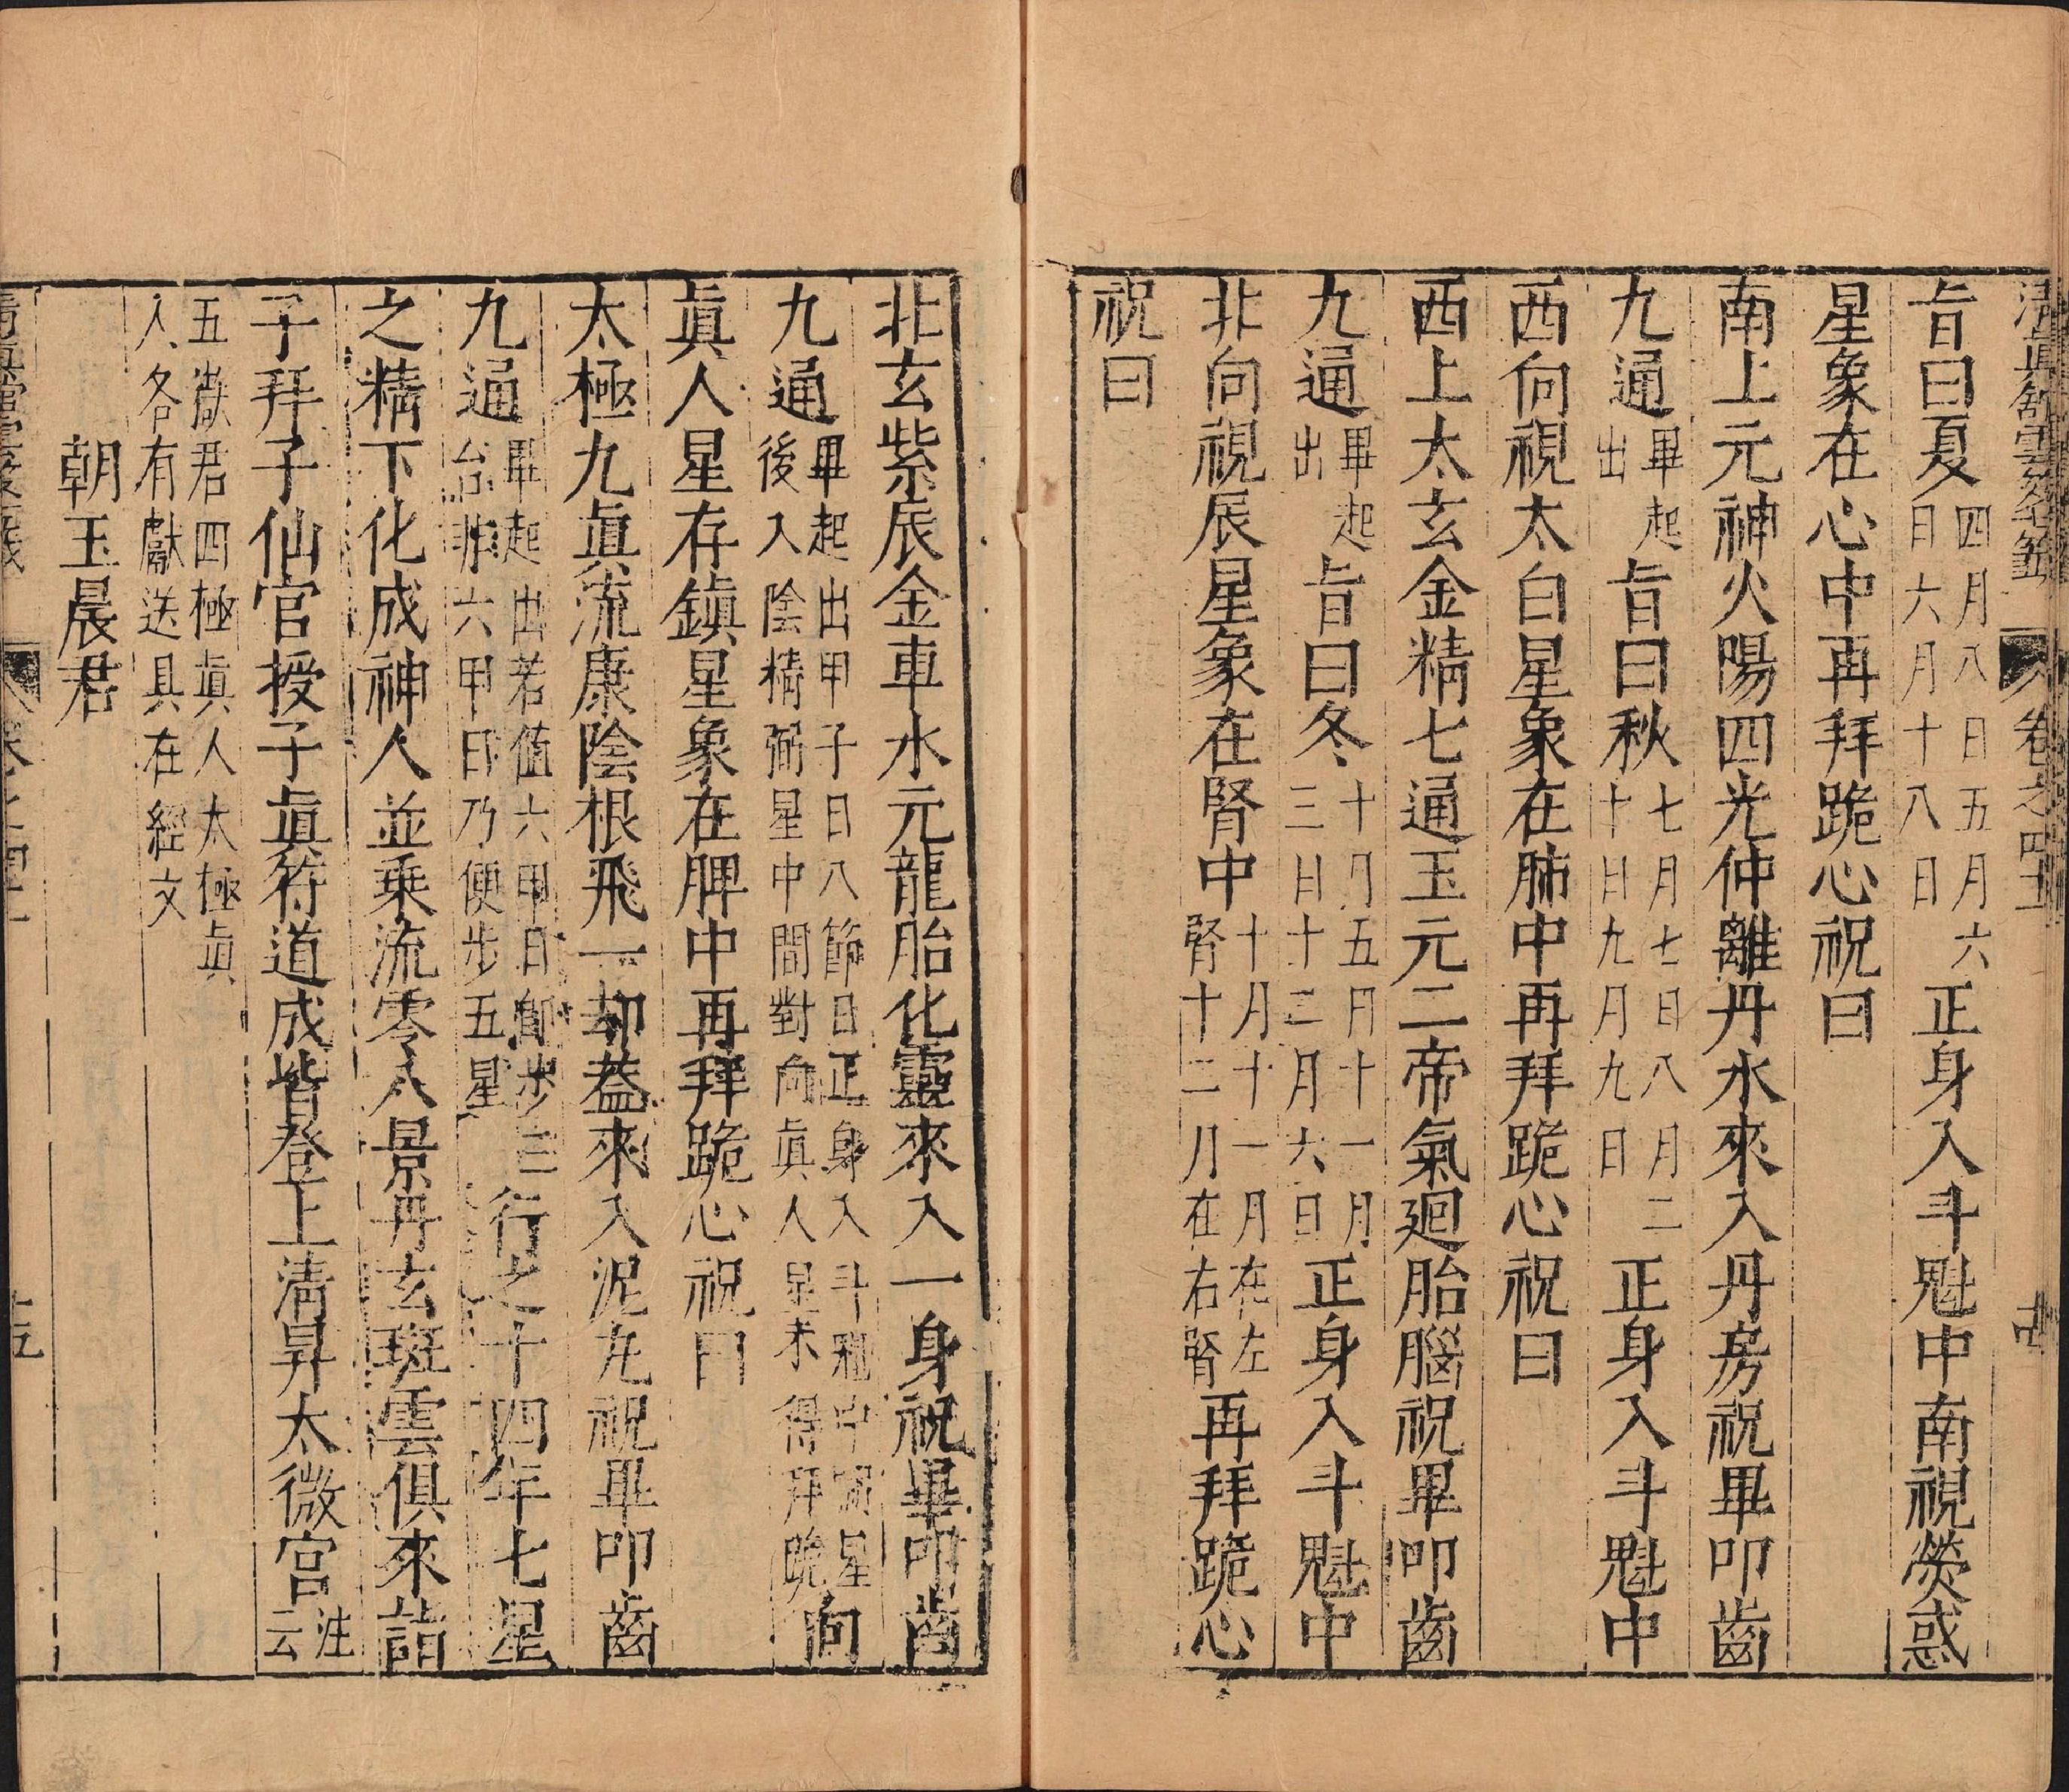 清眞舘雲笈七籤 卷之四十五
旨曰夏四月八日五月六日六月十八日正身入斗魁中南視熒惑
星象在心中再拜跪心祝曰
南上元神火陽四光仲離丹水來入丹房祝畢叩齒
九通畢起出旨曰秋七月七日八月二十日九月九日正身入斗魁中
西向視太白星象在肺中再拜跪心祝曰
西上太玄金精七通玉元二帝氣廻胎腦祝畢叩齒
九通畢起出旨曰冬十月五日十一月三日十二月六日正身入斗魁中
北向視辰星象在腎中十月十一月在左腎十二月在右腎再拜跪心
祝曰
北玄紫辰金車水元龍胎化靈來入一身祝畢叩齒
九通畢起出甲子日八節日正身入斗魁中弼星後入陰精弼星中間對向眞人星未得拜跪向
眞人星存鎭星象在脾中再拜跪心祝曰
太極九眞流康陰根飛一却葢來入泥丸祝畢叩齒
九通畢起出若值六甲日卽步三台非六甲日乃便步五星行之十四年七星
之精下化成神人並乗流零八景丹玄斑雲俱來詣
子拜子仙官授子眞符道成皆登上淸昇太微宫注云
五嶽君四極眞人太極眞人各有獻送具在經文
朝玉晨君